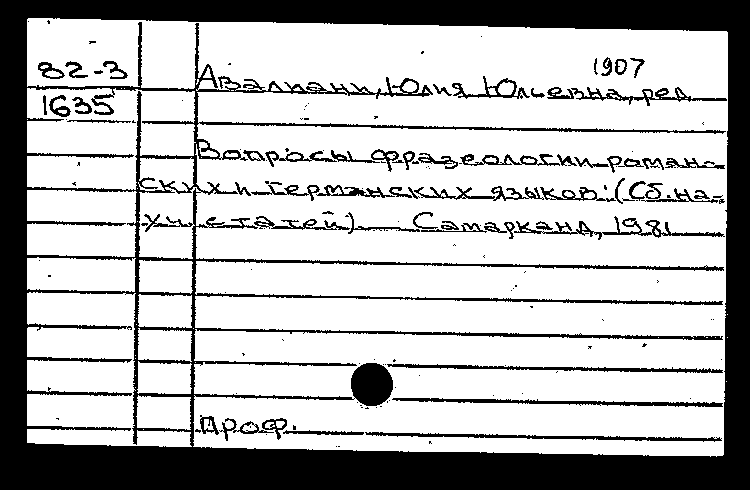 1907
82-3
1635
Авалиани, Юлия Юльевна, ред.
Вопросы фразеологии роман-
ских и германских языков: (Сб. на-
уч. статей). Самарканд, 1981
Проф.